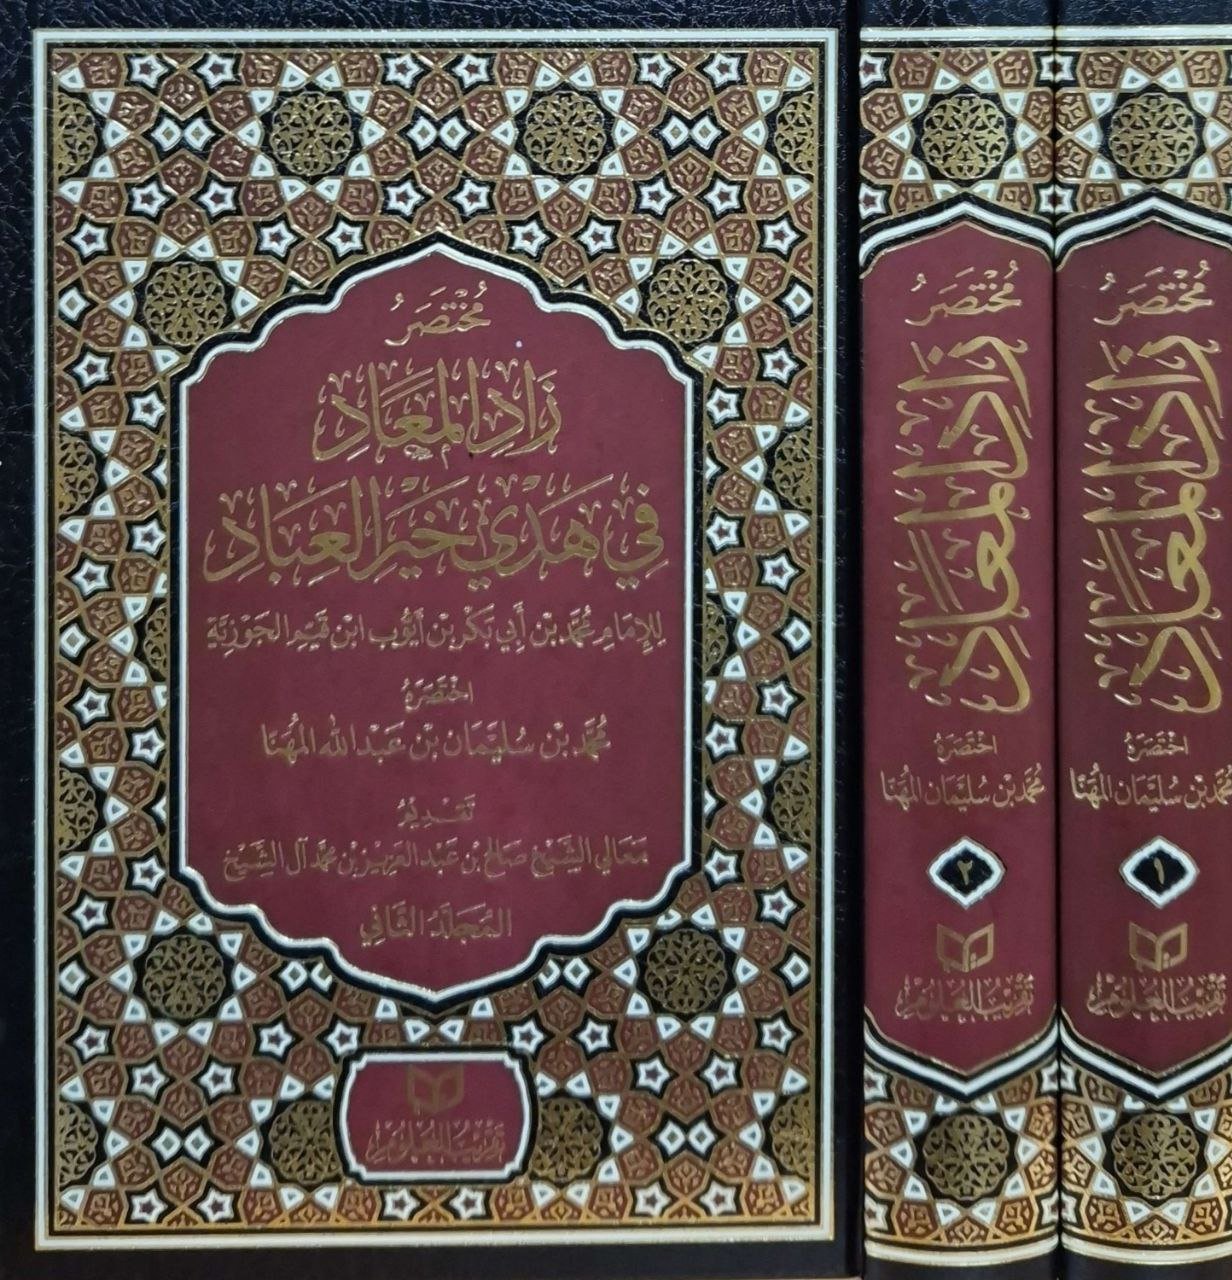 مُخْتَصَرُ
زَادِ المَعَادِ
فِي هَدْيِ خَيْرِ العِبَادِ
لِلإِمَامِ مُحَمَّد بْن أَبِي بَكْر بْن أَيُّوب ابْن قَيِّم الجَوْزِيَّة
اخْتَصَرَهُ
مُحَمَّد بْن سُلَيْمَان بْن عَبْد الله المُهَنَّا
تَقْدِيمُ
مَعَالِي الشَّيْخ صَالِح بْن عَبْد العَزِيز بْن مُحَمَّد آل الشَّيْخ
المُجَلَّدُ الثَّانِي
تقريب العلوم
مُخْتَصَرُ
زَادِ المَعَادِ
اخْتَصَرَهُ
مُحَمَّد بْن سُلَيْمَان المُهَنَّا
٢
تقريب العلوم
مُخْتَصَرُ
زَادِ المَعَادِ
اخْتَصَرَهُ
مُحَمَّد بْن سُلَيْمَان المُهَنَّا
١
تقريب العلوم